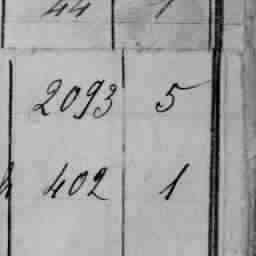 44 1
2093 5
402 1